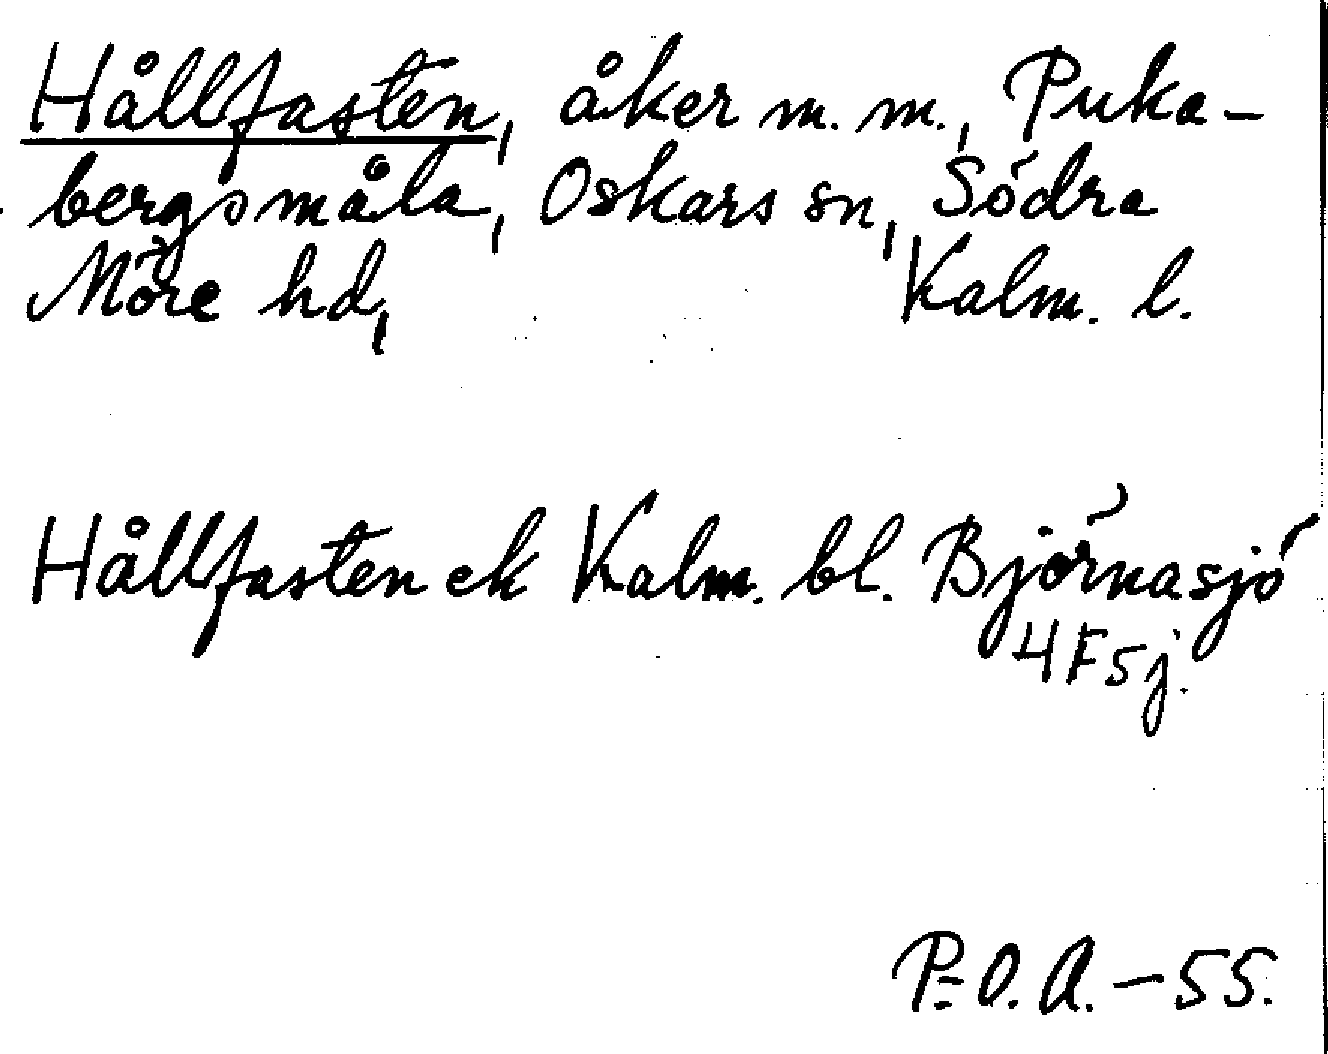 Hållfasten, åker m.m., Puka-
bergsmåla, Oskars sn, Södra
Möre hd, Kalm. l.
Hållfasten ek Kalm. bl. Björnasjö
4F5j.
P.O.A.-55.